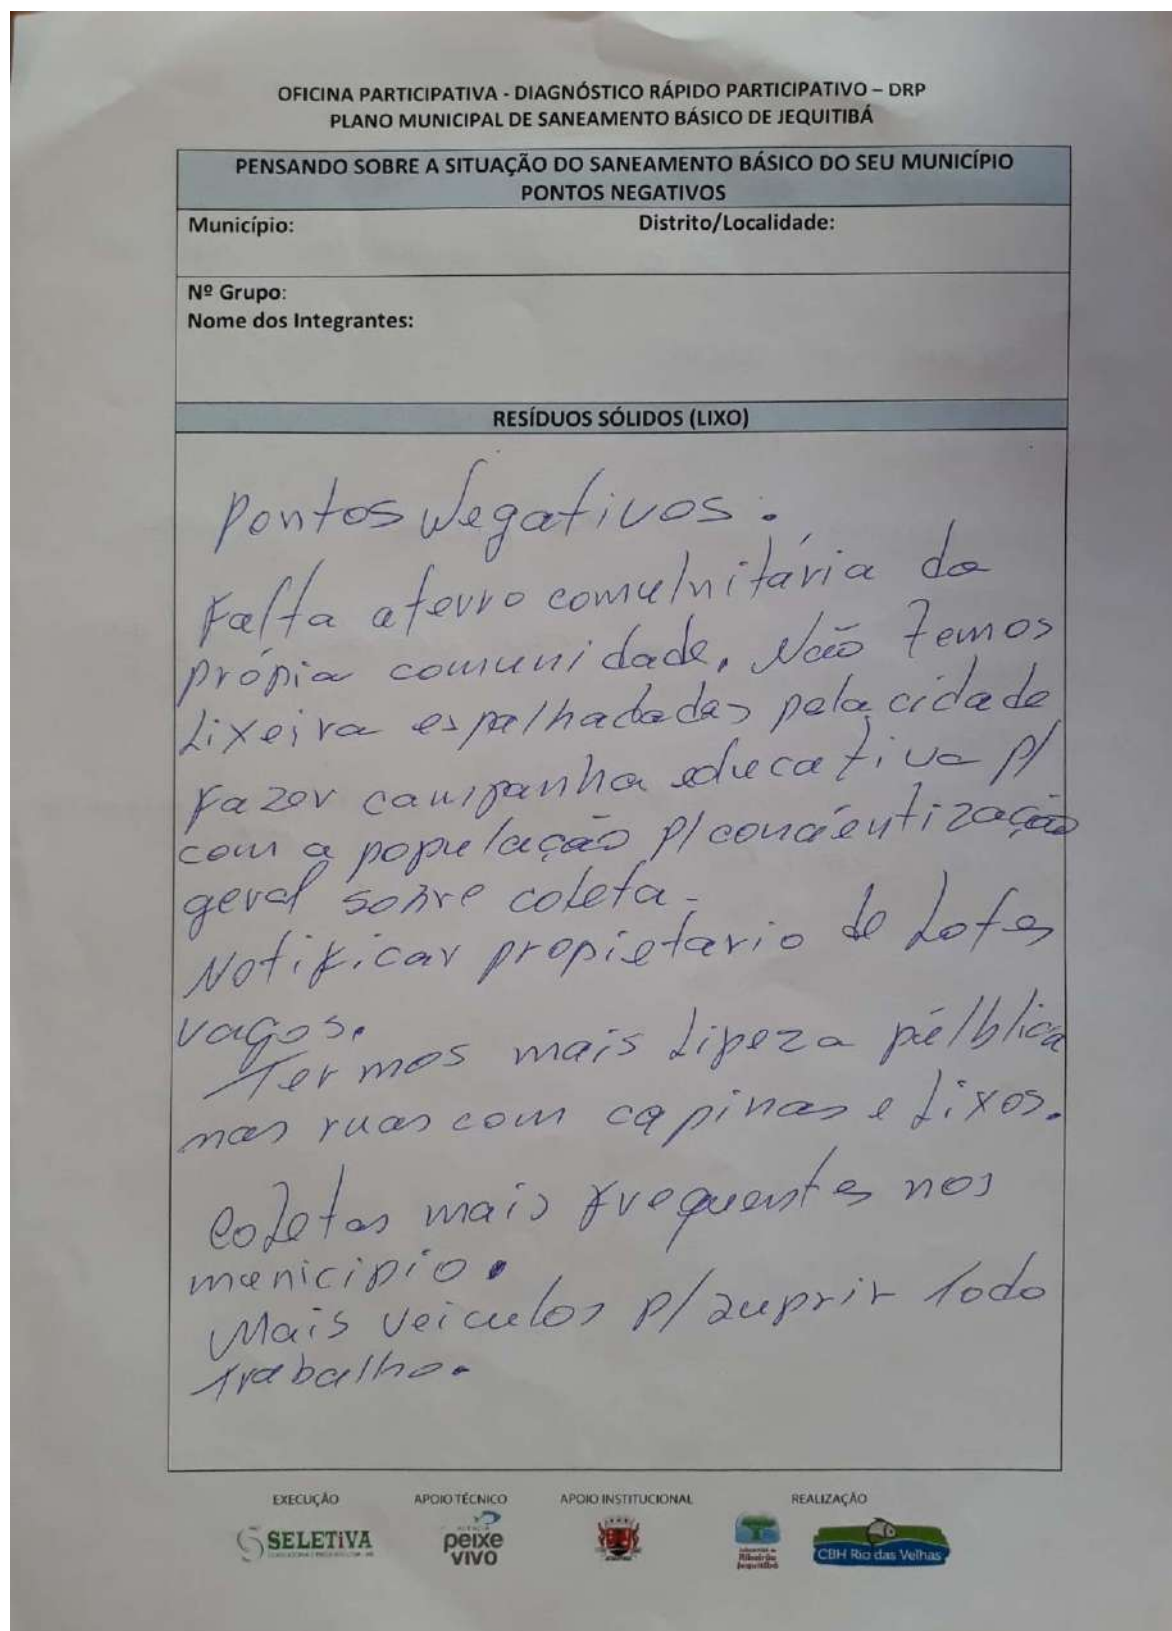 OFICINA PARTICIPATIVA - DIAGNÓSTICO RÁPIDO PARTICIPATIVO – DRP
PLANO MUNICIPAL DE SANEAMENTO BÁSICO DE JEQUITIBÁ
PENSANDO SOBRE A SITUAÇÃO DO SANEAMENTO BÁSICO DO SEU MUNICÍPIO
PONTOS NEGATIVOS
Município: Distrito/Localidade:
Nº Grupo:
Nome dos Integrantes:
RESÍDUOS SÓLIDOS (LIXO)
Pontos Negativos.
Falta aterro comunitária da
própia comunidade. Não temos
Lixeira espalhadadas pela cidade
Fazer campanha educativa p/
com a população p/ conciêntização
geral sobre coleta.
Notificar propietario de Lotes
vagos.
Termos mais Lipeza pública
nas ruas com capinas e Lixos.
Coletas mais frequentes nos
municipio.
Mais veiculos p/ suprir todo
trabalho.
EXECUÇÃO APOIO TÉCNICO APOIO INSTITUCIONAL REALIZAÇÃO
SELETiVA peixe vivo CBH Rio das Velhas